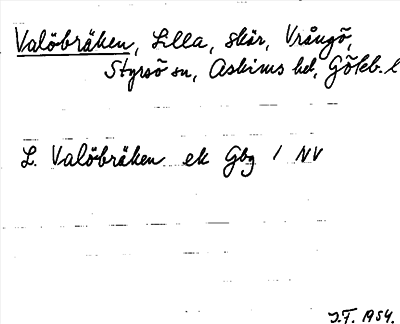 Valöbräken, Lilla, skär, Vrångö,
Styrsö sn, Askims hd, Göteb. l
L. Valöbräken ek Gbg 1 NV
J.F. 1954.